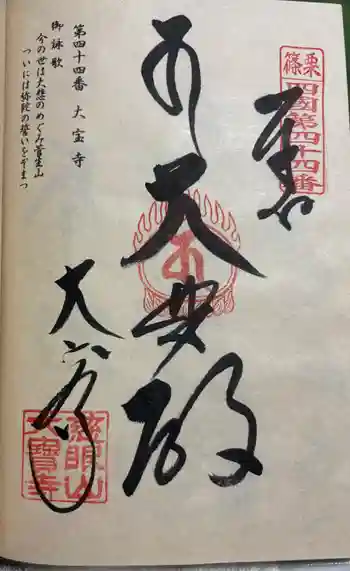 篠栗
四國第四十四番
奉拝
大悲殿
大宝寺
慈眼山
大寶寺
第四十四番 大宝寺
御詠歌
今の世は大悲のめぐみ菅生山
ついには弥陀の誓いをぞまつ